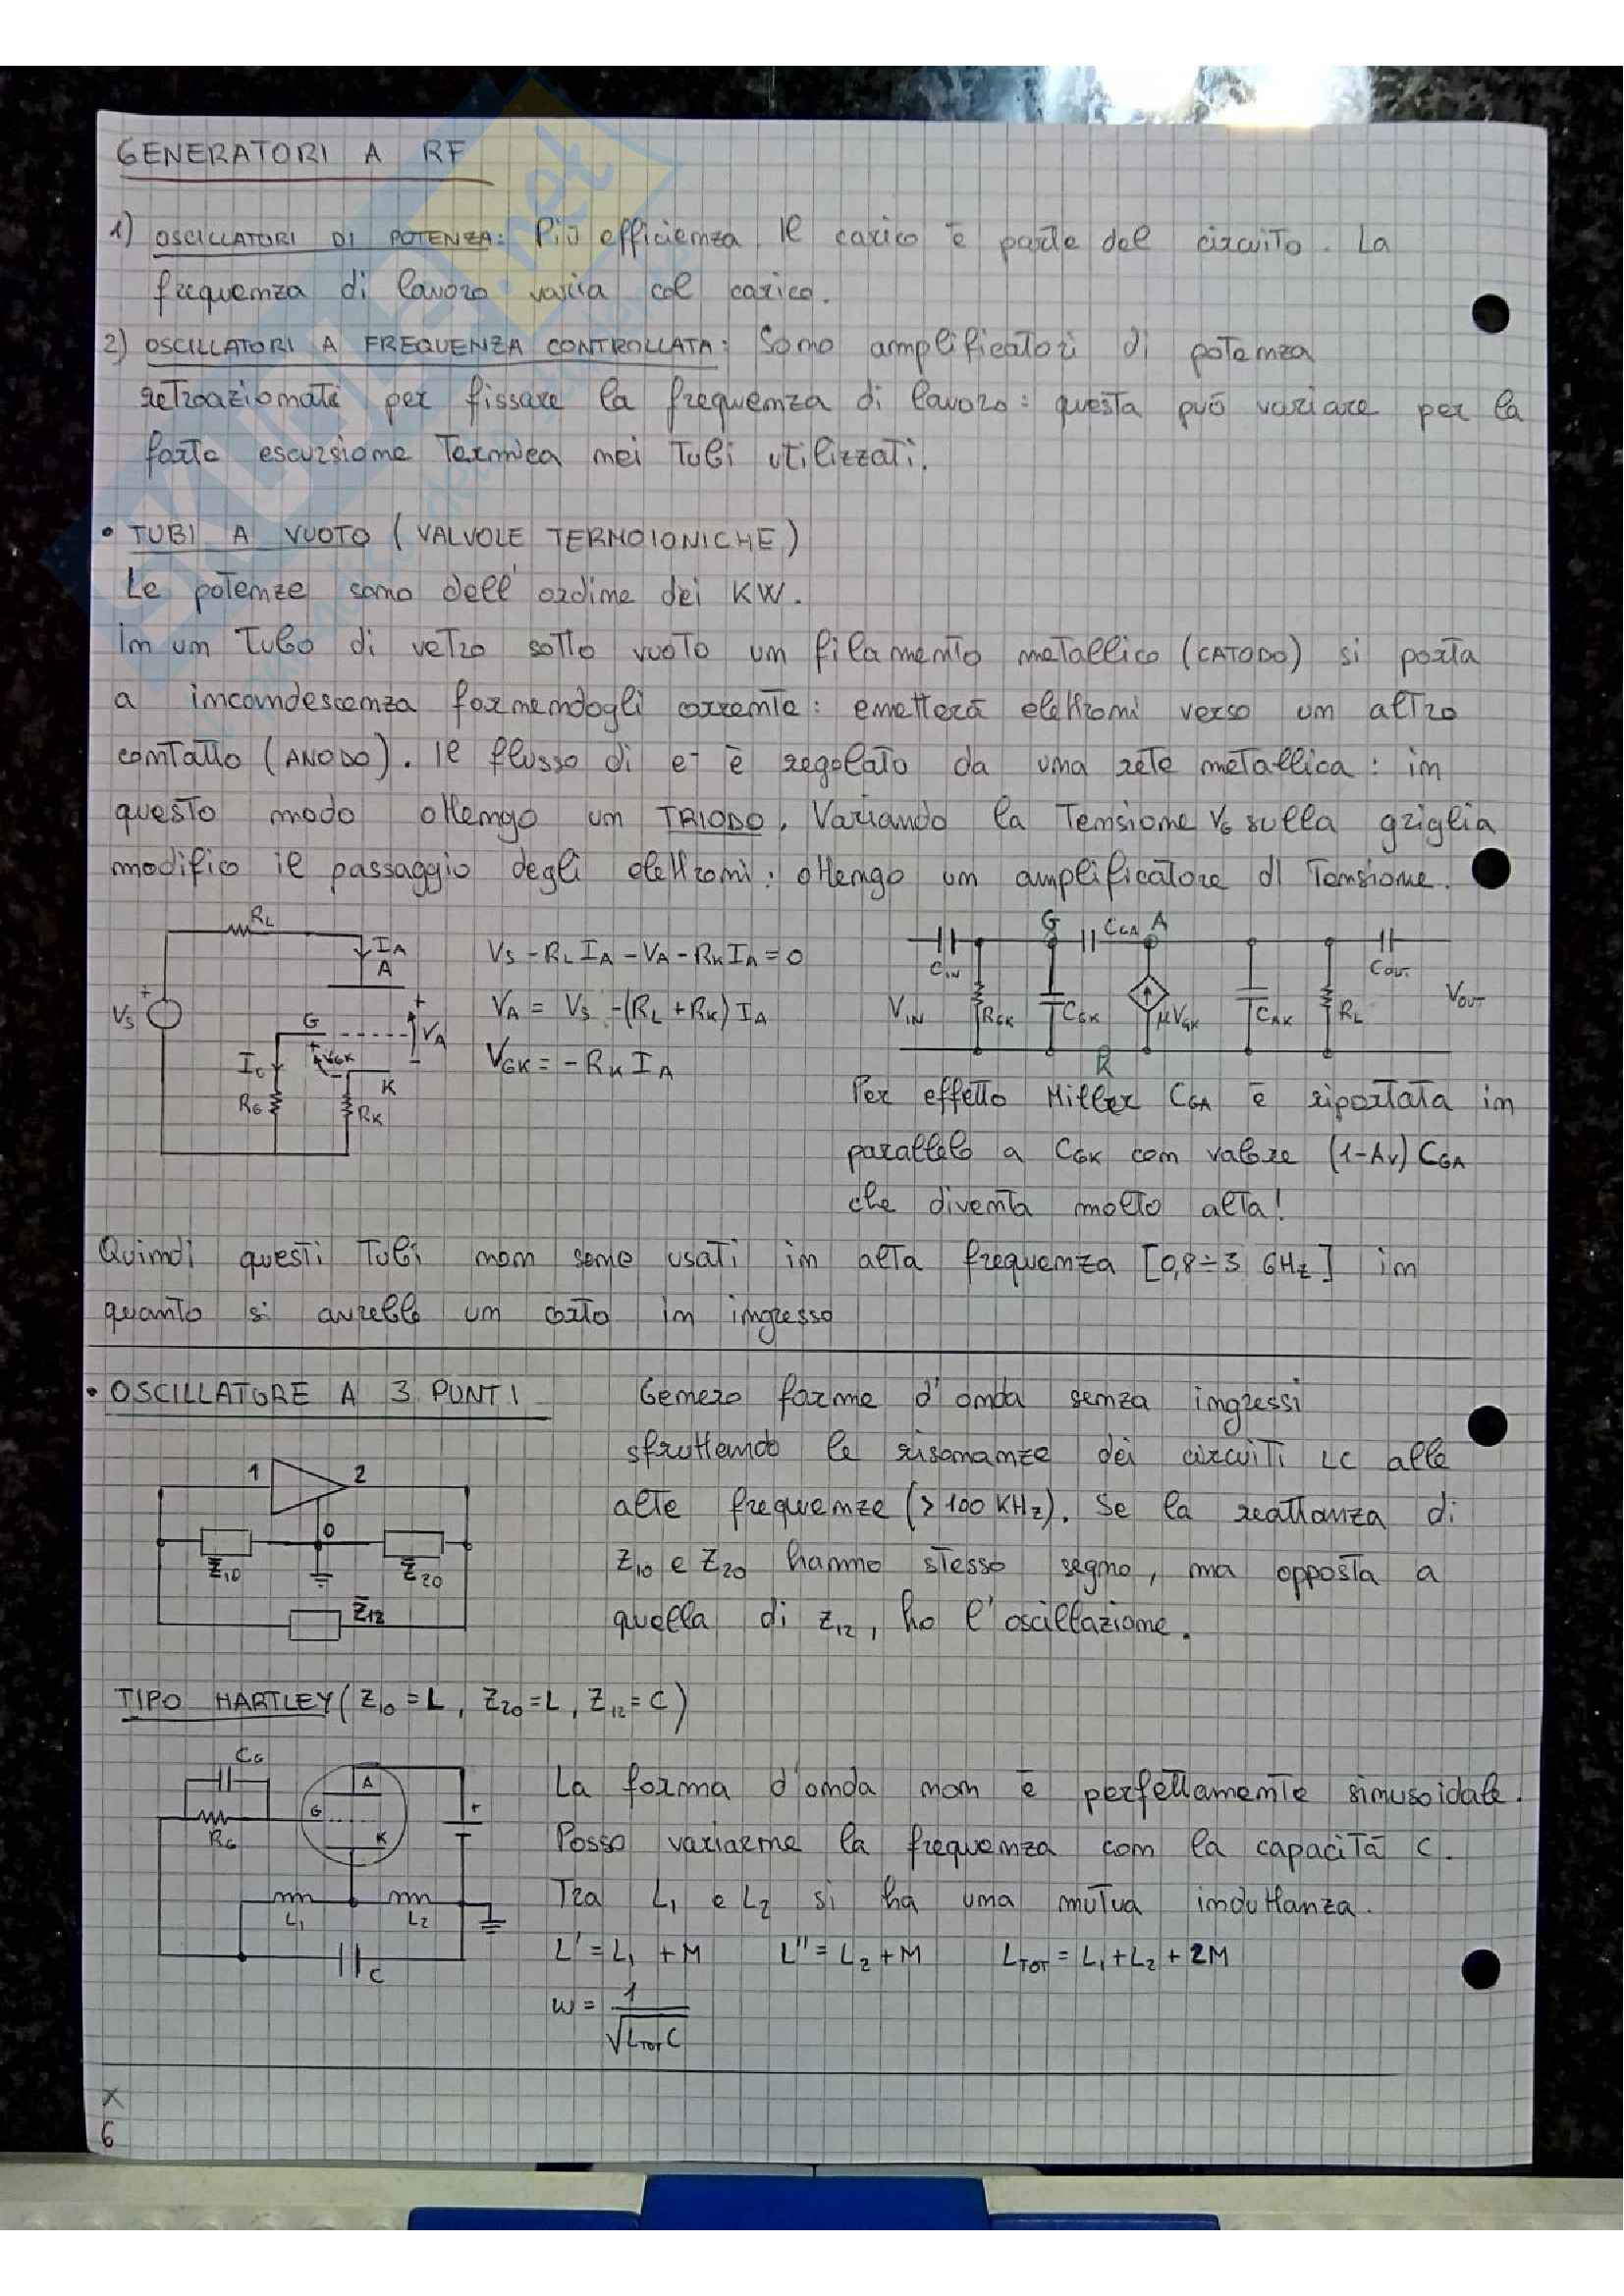 GENERATORI A RF
1) OSCILLATORI DI POTENZA: Più efficienza. Il carico è parte del circuito. La
frequenza di lavoro varia col carico.
2) OSCILLATORI A FREQUENZA CONTROLLATA: Sono amplificatori di potenza
retroazionati per fissare la frequenza di lavoro: questa può variare per la
forte escursione termica nei tubi utilizzati.
• TUBI A VUOTO (VALVOLE TERMOIONICHE)
Le potenze sono dell'ordine dei KW.
in un tubo di vetro sotto vuoto un filamento metallico (CATODO) si porta
a incandescenza fornendogli corrente: emetterà elettroni verso un altro
contatto (ANODO). Il flusso di e⁻ è regolato da una rete metallica: in
questo modo ottengo un TRIODO. Variando la tensione VG sulla griglia
modifico il passaggio degli elettroni: ottengo un amplificatore di tensione.
RL
IA
A
VS
+
G
VGK
+
VA
-
IG
RG
K
RK
VS - RL IA - VA - RK IA = 0
VA = VS - (RL + RK) IA
VGK = - RK IA
G CGA A
CIN
COUT
VIN RGK CGK μVGK CAK RL VOUT
K
Per effetto Miller CGA è riportata in
parallelo a CGK con valore (1-Av) CGA
che diventa molto alta!
Quindi questi tubi non sono usati in alta frequenza [0,8÷3 GHz] in
quanto si avrebbe un corto in ingresso
• OSCILLATORE A 3 PUNTI
Genero forme d'onda senza ingressi
sfruttando le risonanze dei circuiti LC alle
alte frequenze (>100 KHz). Se la reattanza di
Z10 e Z20 hanno stesso segno, ma opposta a
quella di Z12, ho l'oscillazione.
1 2
0
Z̄10 Z̄20
Z̄12
TIPO HARTLEY (Z10 = L, Z20 = L, Z12 = C)
CG
RG
A
G
K
+
L1 L2
C
La forma d'onda non è perfettamente sinusoidale.
Posso variarne la frequenza con la capacità C.
Tra L1 e L2 si ha una mutua induttanza.
L' = L1 + M L'' = L2 + M LTOT = L1 + L2 + 2M
ω = 1/√(LTOT C)
X
6